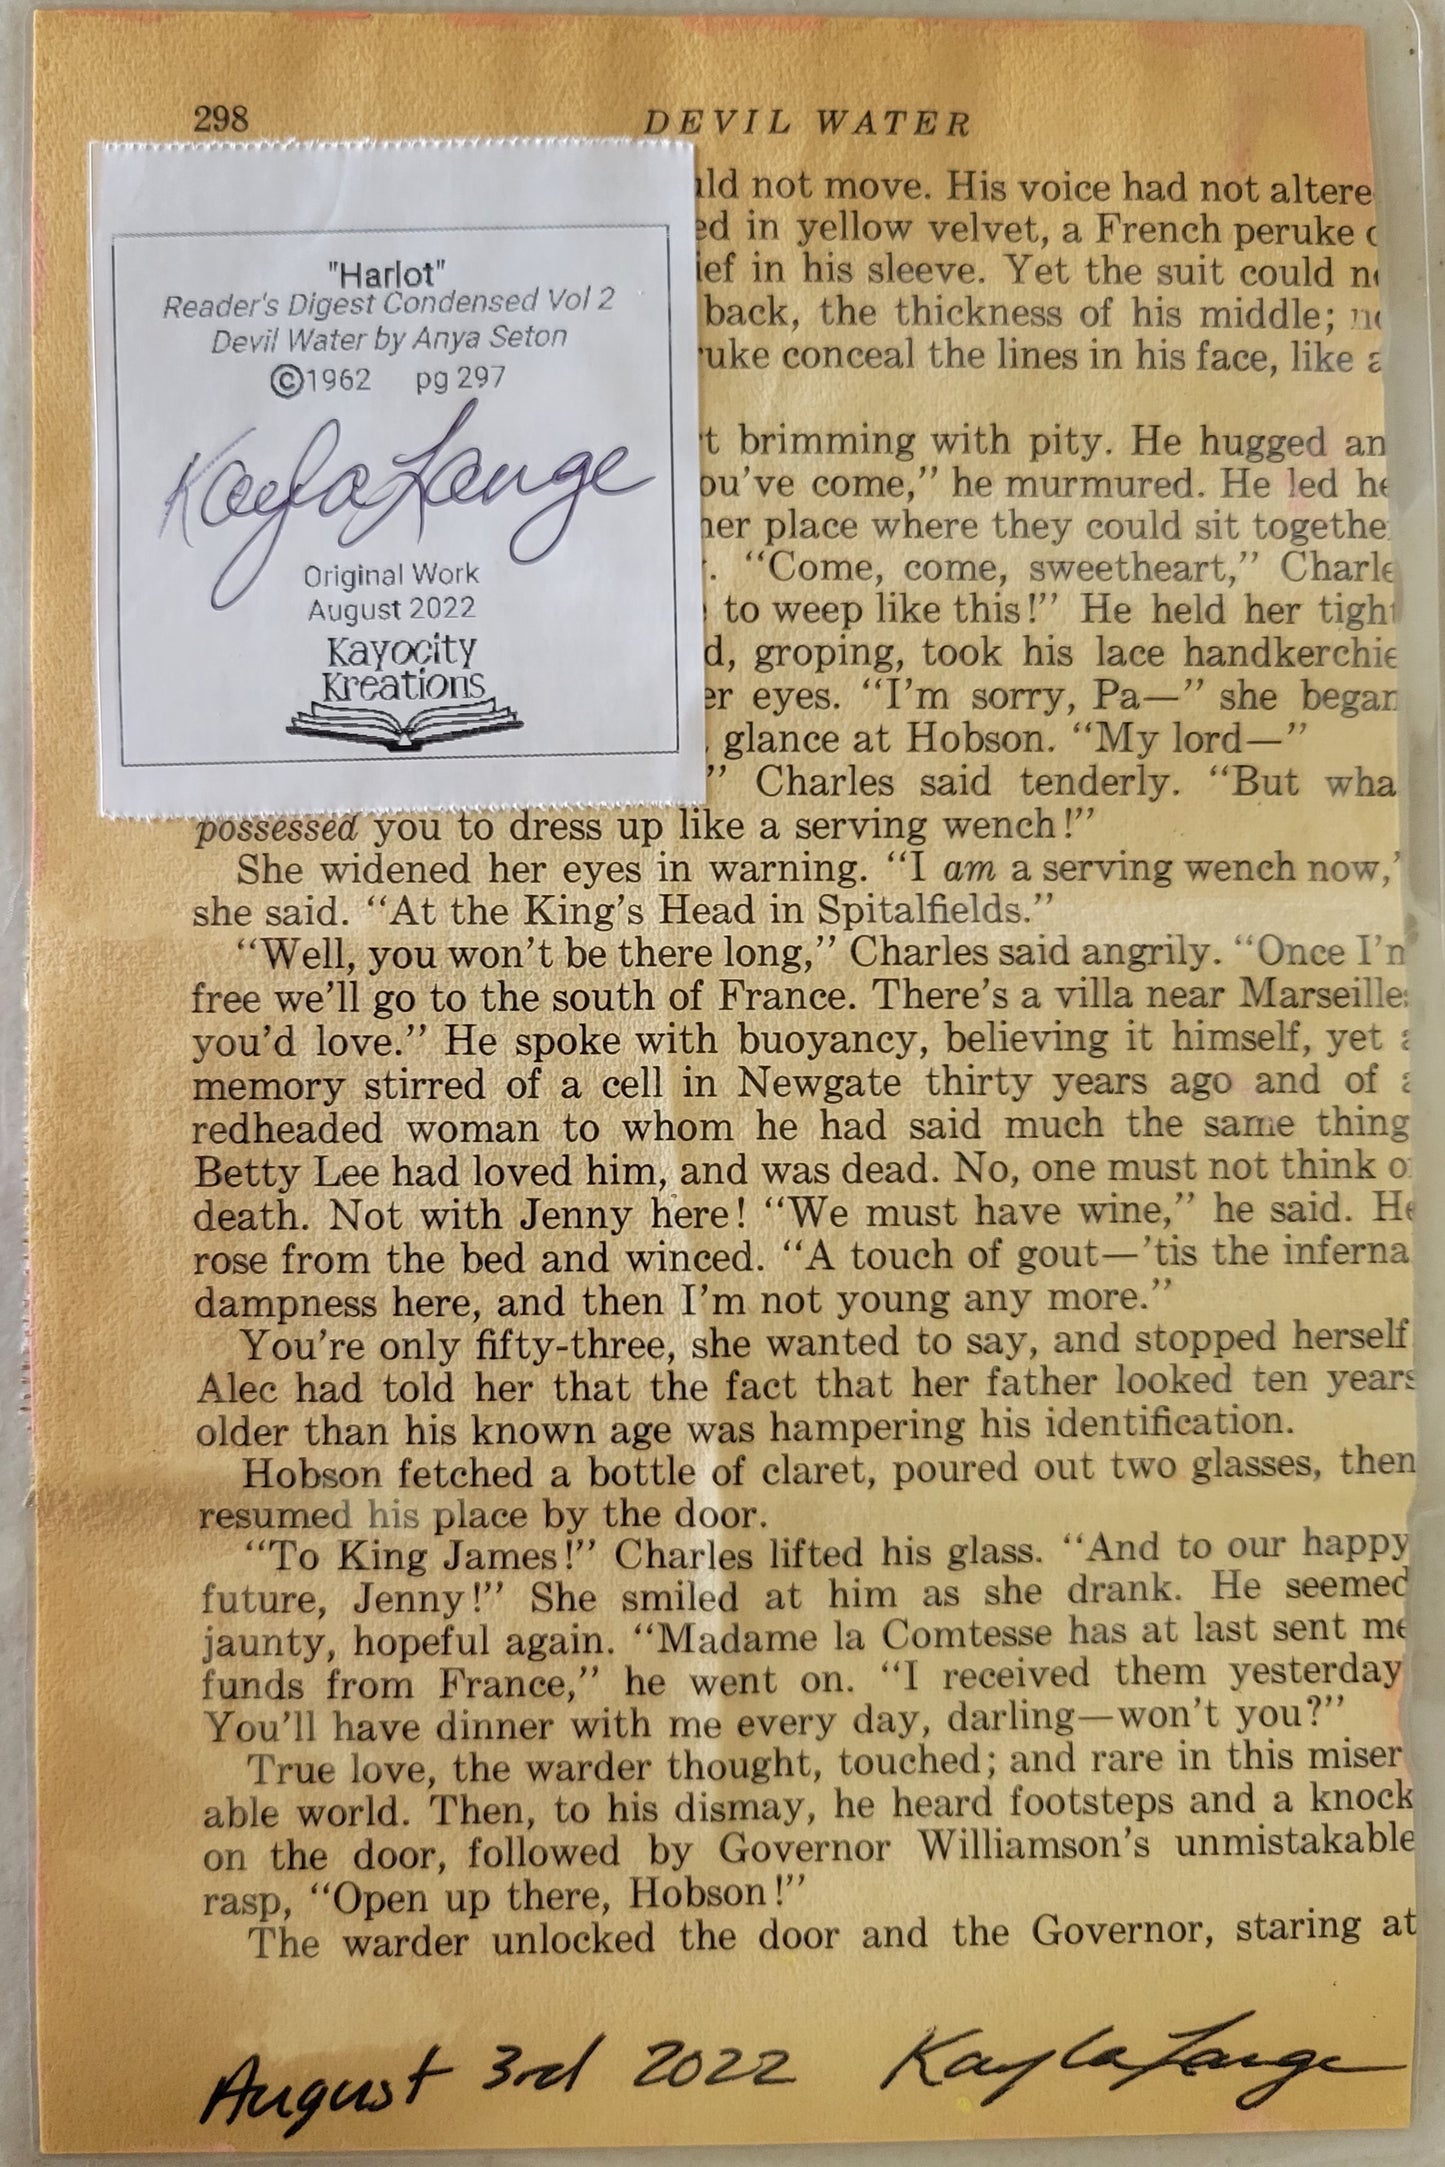 298 DEVIL WATER
"Harlot"
Reader's Digest Condensed Vol 2
Devil Water by Anya Seton
©1962 pg 297
Kayla Lange
Original Work
August 2022
Kayocity
Kreations
not move. His voice had not
in yellow velvet, a French peruke
in his sleeve. Yet the suit could
back, the thickness of his middle;
conceal the lines in his face, like
brimming with pity. He hugged
come,” he murmured. He led
place where they could sit
“Come, come, sweetheart,”
to weep like this!” He held her
groping, took his lace
eyes. “I’m sorry, Pa—” she
glance at Hobson. “My lord—”
” Charles said tenderly. “But
possessed you to dress up like a serving wench!”
She widened her eyes in warning. “I am a serving wench now,’
she said. “At the King’s Head in Spitalfields.”
“Well, you won’t be there long,” Charles said angrily. “Once
free we’ll go to the south of France. There’s a villa near
you’d love.” He spoke with buoyancy, believing it himself, yet
memory stirred of a cell in Newgate thirty years ago and of
redheaded woman to whom he had said much the same thing
Betty Lee had loved him, and was dead. No, one must not think
death. Not with Jenny here! “We must have wine,” he said.
rose from the bed and winced. “A touch of gout—’tis the
dampness here, and then I’m not young any more.”
You’re only fifty-three, she wanted to say, and stopped herself
Alec had told her that the fact that her father looked ten years
older than his known age was hampering his identification.
Hobson fetched a bottle of claret, poured out two glasses, then
resumed his place by the door.
“To King James!” Charles lifted his glass. “And to our happy
future, Jenny!” She smiled at him as she drank. He seemed
jaunty, hopeful again. “Madame la Comtesse has at last sent me
funds from France,” he went on. “I received them yesterday
You’ll have dinner with me every day, darling—won’t you?”
True love, the warder thought, touched; and rare in this miser
able world. Then, to his dismay, he heard footsteps and a knock
on the door, followed by Governor Williamson’s unmistakable
rasp, “Open up there, Hobson!”
The warder unlocked the door and the Governor, staring at
August 3rd 2022 Kayla Lange